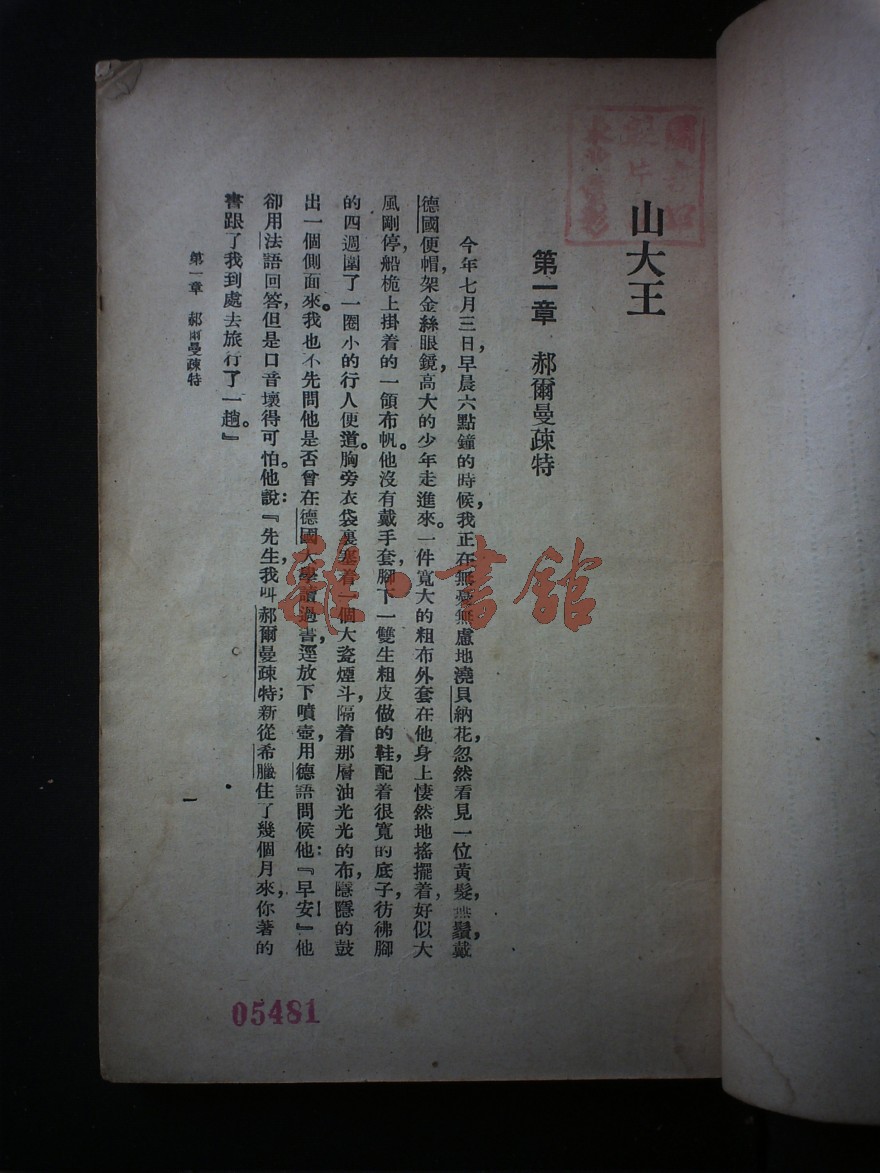 山大王
第一章　郝爾曼疎特
今年七月三日，早晨六點鐘的時候，我正在無憂無慮地澆貝納花，忽然看見一位黃髮，無鬚，戴
德國便帽，架金絲眼鏡，高大的少年走進來。一件寬大的粗布外套在他身上悽然地搖擺着，好似大
風剛停，船桅上掛着的一領布帆。他沒有戴手套，腳下一雙生粗皮做的鞋，配着很寬的底子，彷彿腳
的四週圍了一圈小的行人便道。胸旁衣袋裏塞着一個大瓷煙斗，隔着那層油光光的布，隱隱的鼓
出一個側面來。我也不先問他是否曾在德國大學讀過書，逕放下噴壺，用德語問候他：『早安！』他
卻用法語回答，但是口音壞得可怕。他說：『先生，我叫郝爾曼疎特；新從希臘住了幾個月來，你著的
書跟了我到處去旅行了一趟。』
第一章　郝爾曼疎特
一
05481
雜·書館